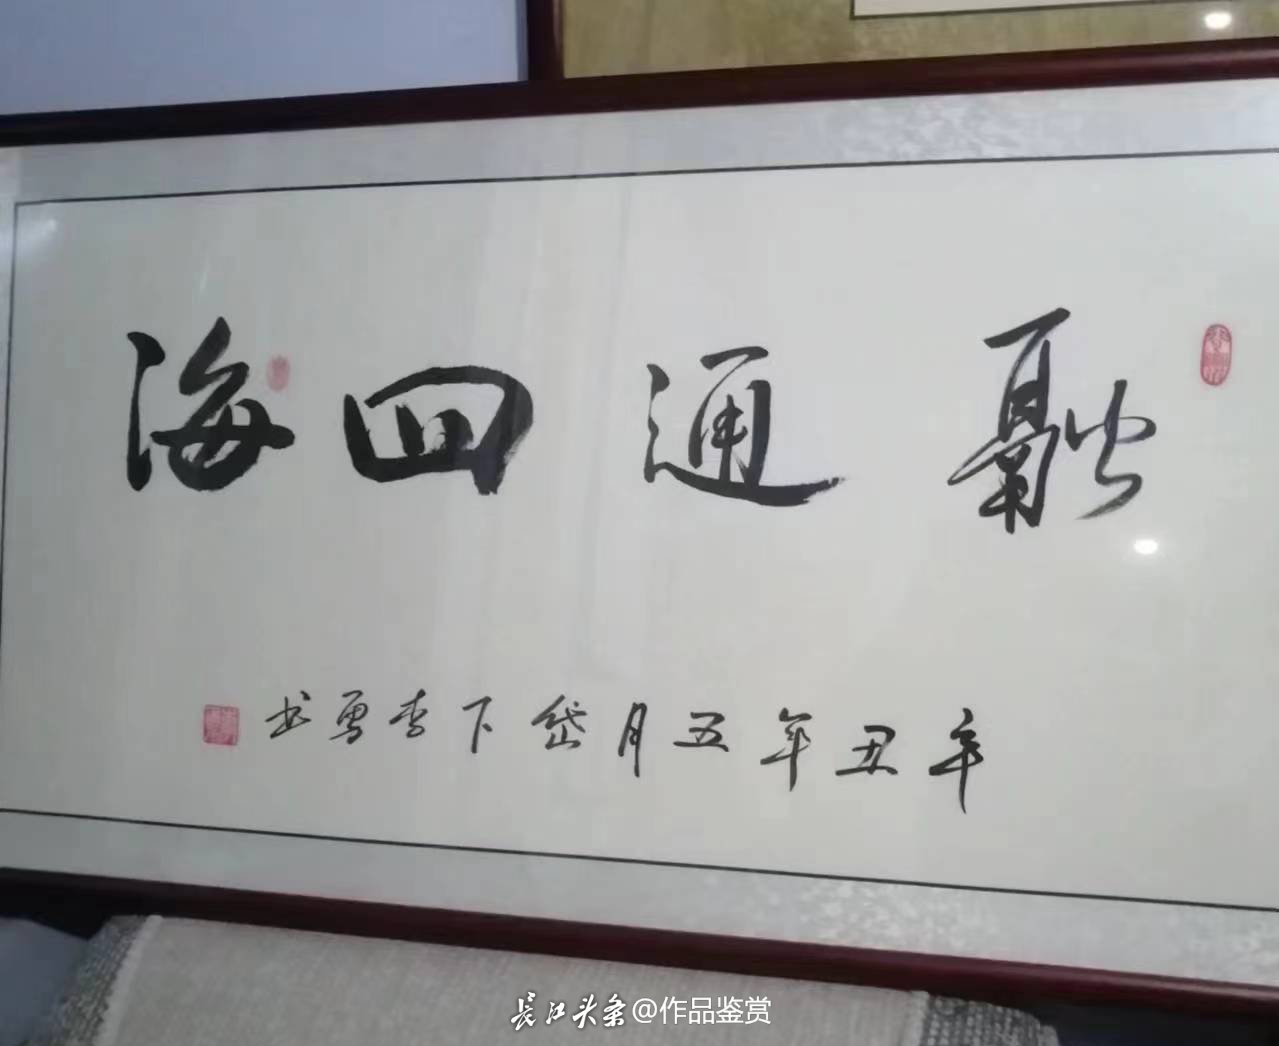 融通四海
辛丑年五月岱下李勇书
长江头条@作品鉴赏